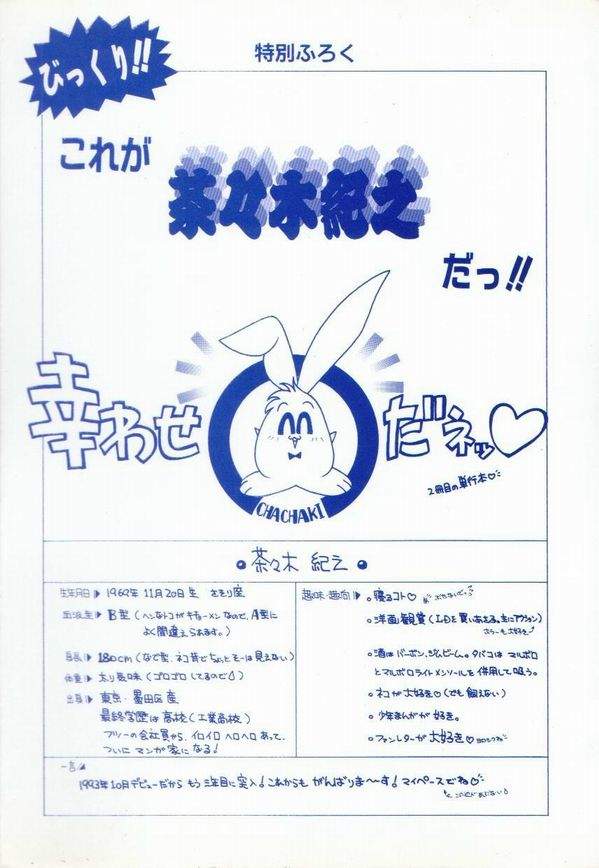 びっくり!!
特別ふろく
これが
茶々木紀之
だっ!!
幸わせ
だネッ♡
CHACHAKI
2冊目の単行本♡
•茶々木 紀之•
生年月日▶ 1962年 11月20日生 さそり座
血液型▶ B型(ヘンなトコがキチョーメンなので、A型に
よく間違えられます。)
身長▶ 180cm(なで型、ネコ背でちょっとそーは見えない)
体重▶ 太り気味(ゴロゴロしてるので)
出身▶ 東京・墨田区産
最終学歴は高校(工業高校)
フツーの会社員から、イロイロヘロヘロあって、
ついにマンガ家になる!
趣味・趣向▶ 。寝るコト♡
。洋画観賞(LDを買いあさる。主にアクション)
ホラーも大好き
。酒はバーボン、ジムビーム。タバコは マルボロ
とマルボロライトメンソールを併用して吸う。
。ネコが大好き♡(でも飼えない)
。少年まんがが好き。
。ファンレターが大好き♡
一言
1993年10月デビューだから もう 三年目に突入!これからも がんばりま〜す!マイペースでね♡